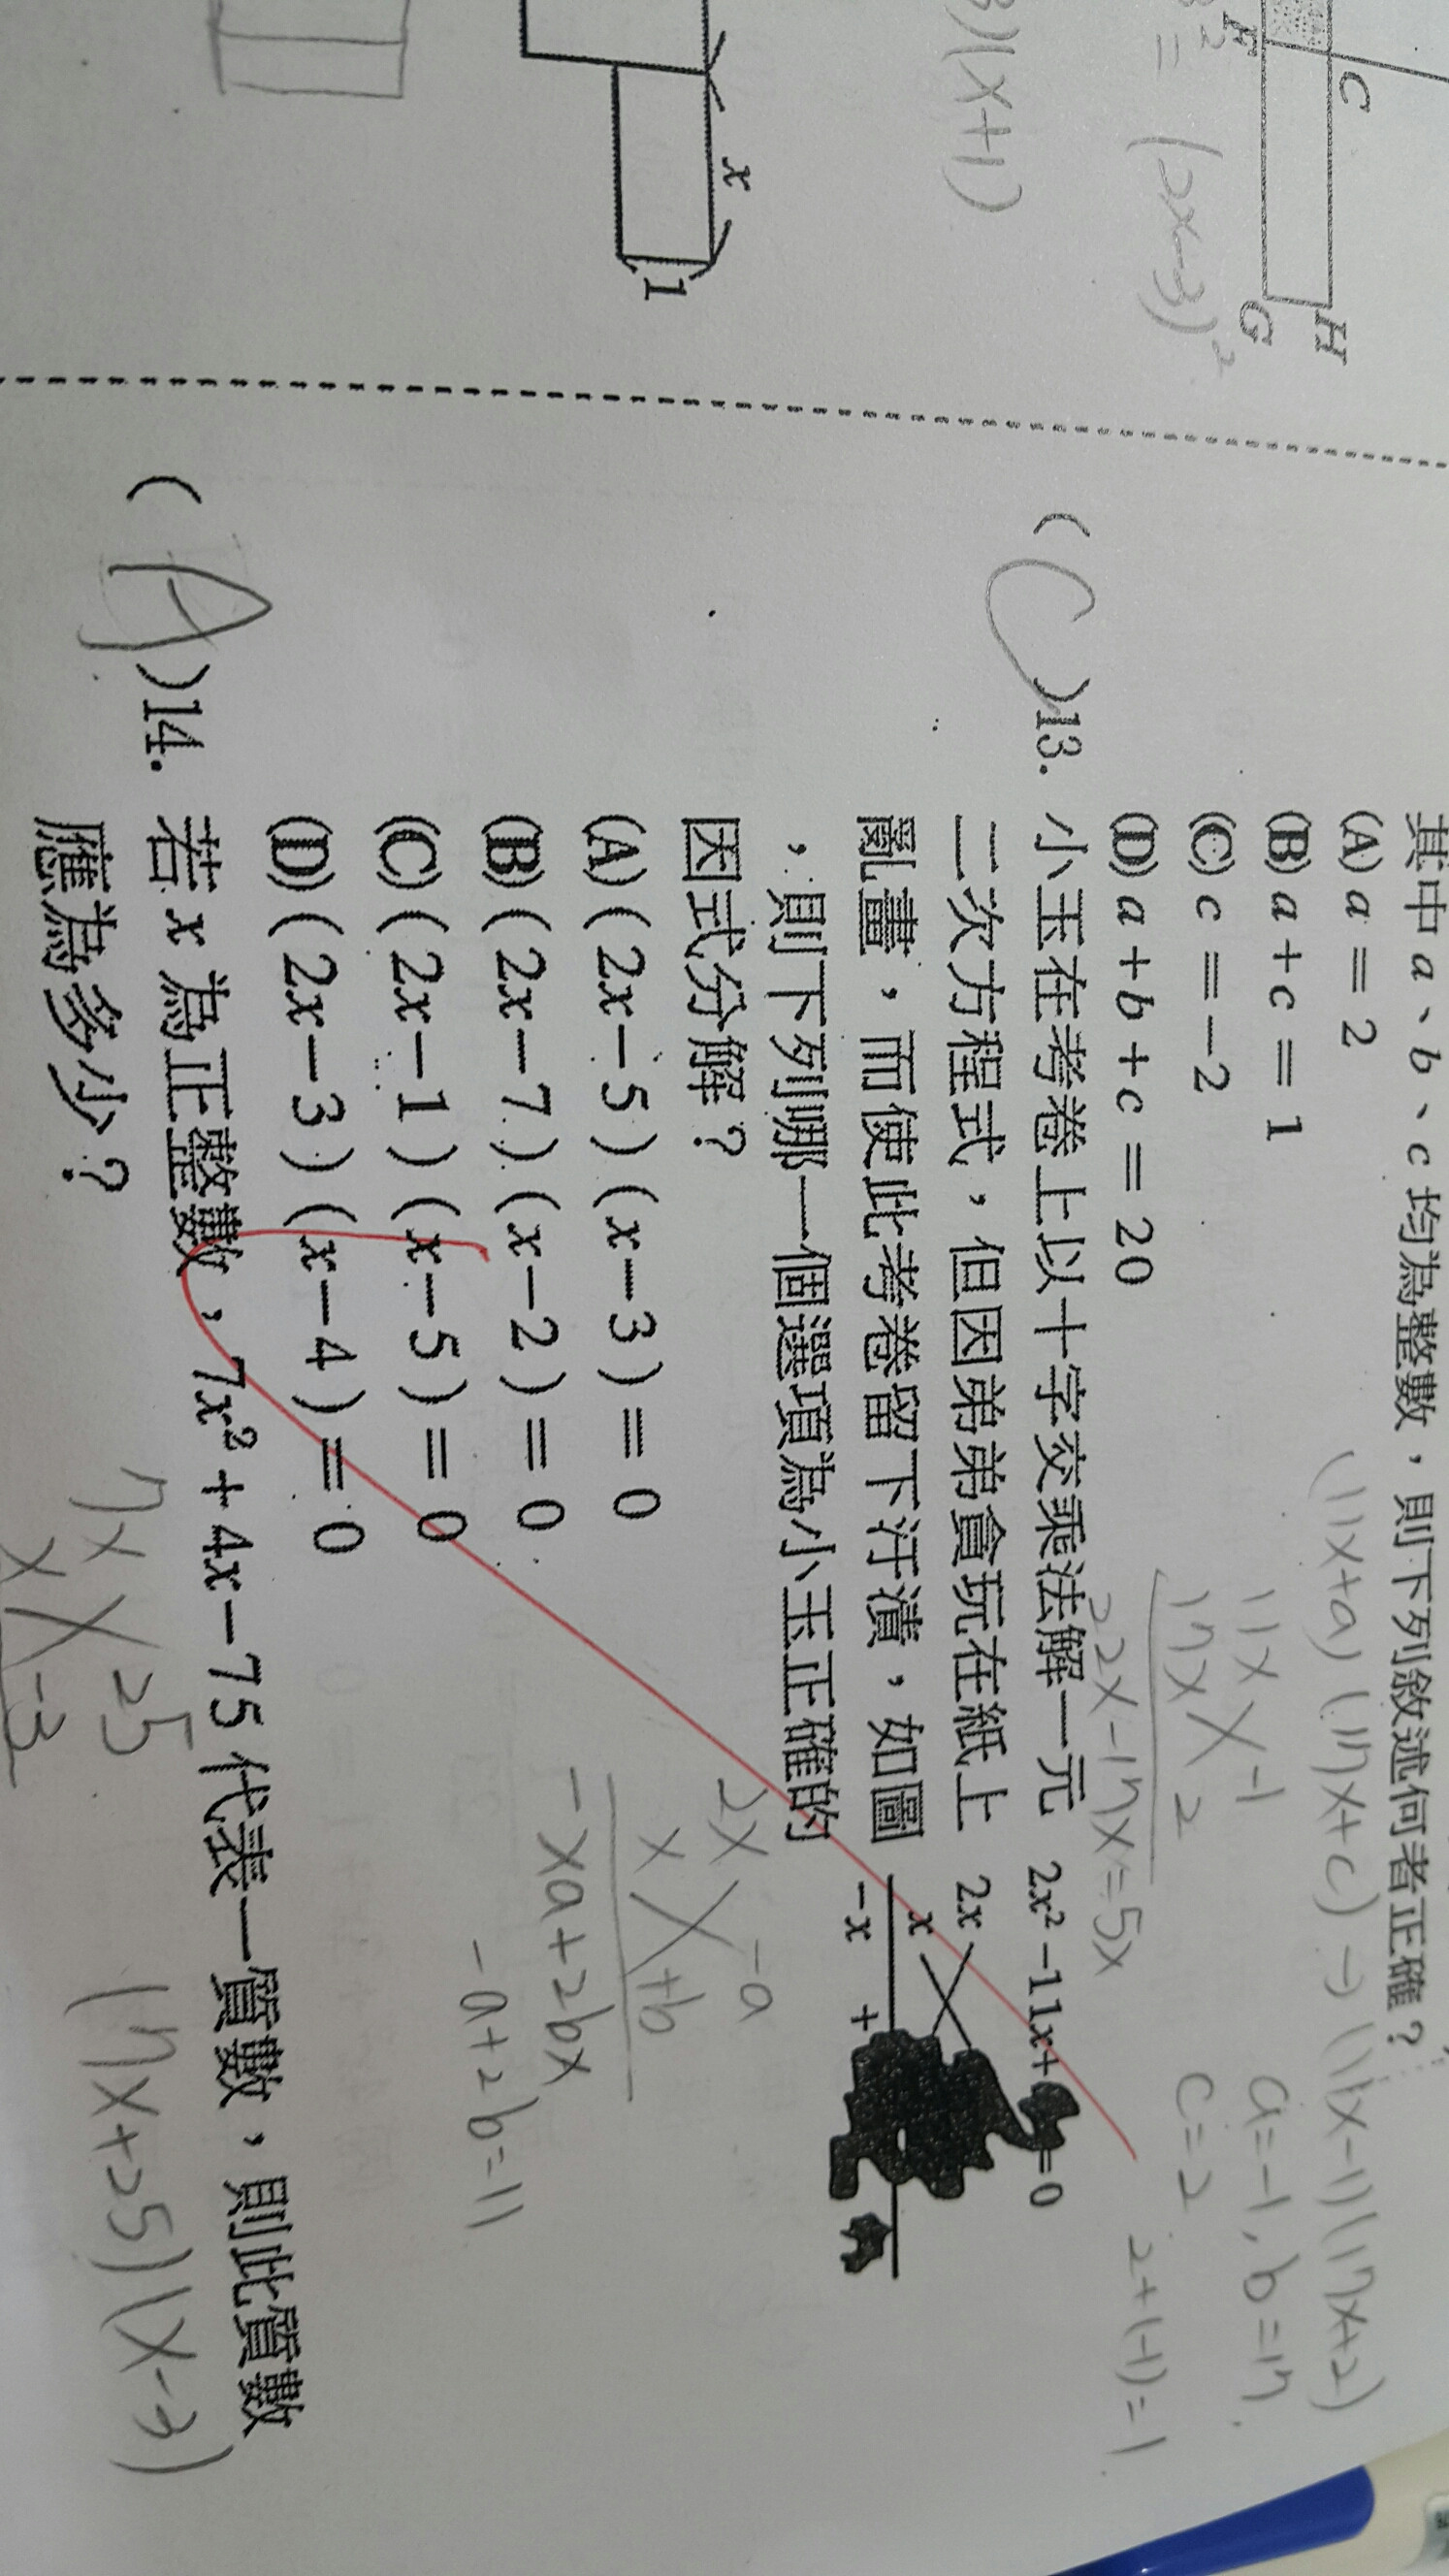 C
F
H
G
= (2x-3)²
)(x+1)
x
1
其中 a、b、c 均為整數,則下列敘述何者正確?
(A) a = 2
(B) a + c = 1
(C) c = -2
(D) a + b + c = 20
(11x+a)(17x+c) → (11x-1)(17x+2)
11x -1
17x 2
22x-17x=5x
a=-1, b=17
c=2
2+(-1)=1
(C)13. 小玉在考卷上以十字交乘法解一元
二次方程式,但因弟弟貪玩在紙上
亂畫,而使此考卷留下汙漬,如圖
,則下列哪一個選項為小玉正確的
因式分解?
2x² -11x+ =0
2x
x
-x +
(A) ( 2x-5 ) ( x-3 ) = 0
(B) ( 2x-7 ) ( x-2 ) = 0
(C) ( 2x-1 ) ( x-5 ) = 0
(D) ( 2x-3 ) ( x-4 ) = 0
2x -a
x +b
-xa+2bx
-a+2b=11
(A)14. 若 x 為正整數,7x² + 4x-75 代表一質數,則此質數
應為多少?
7x 25
x -3
(7x+25)(x-3)